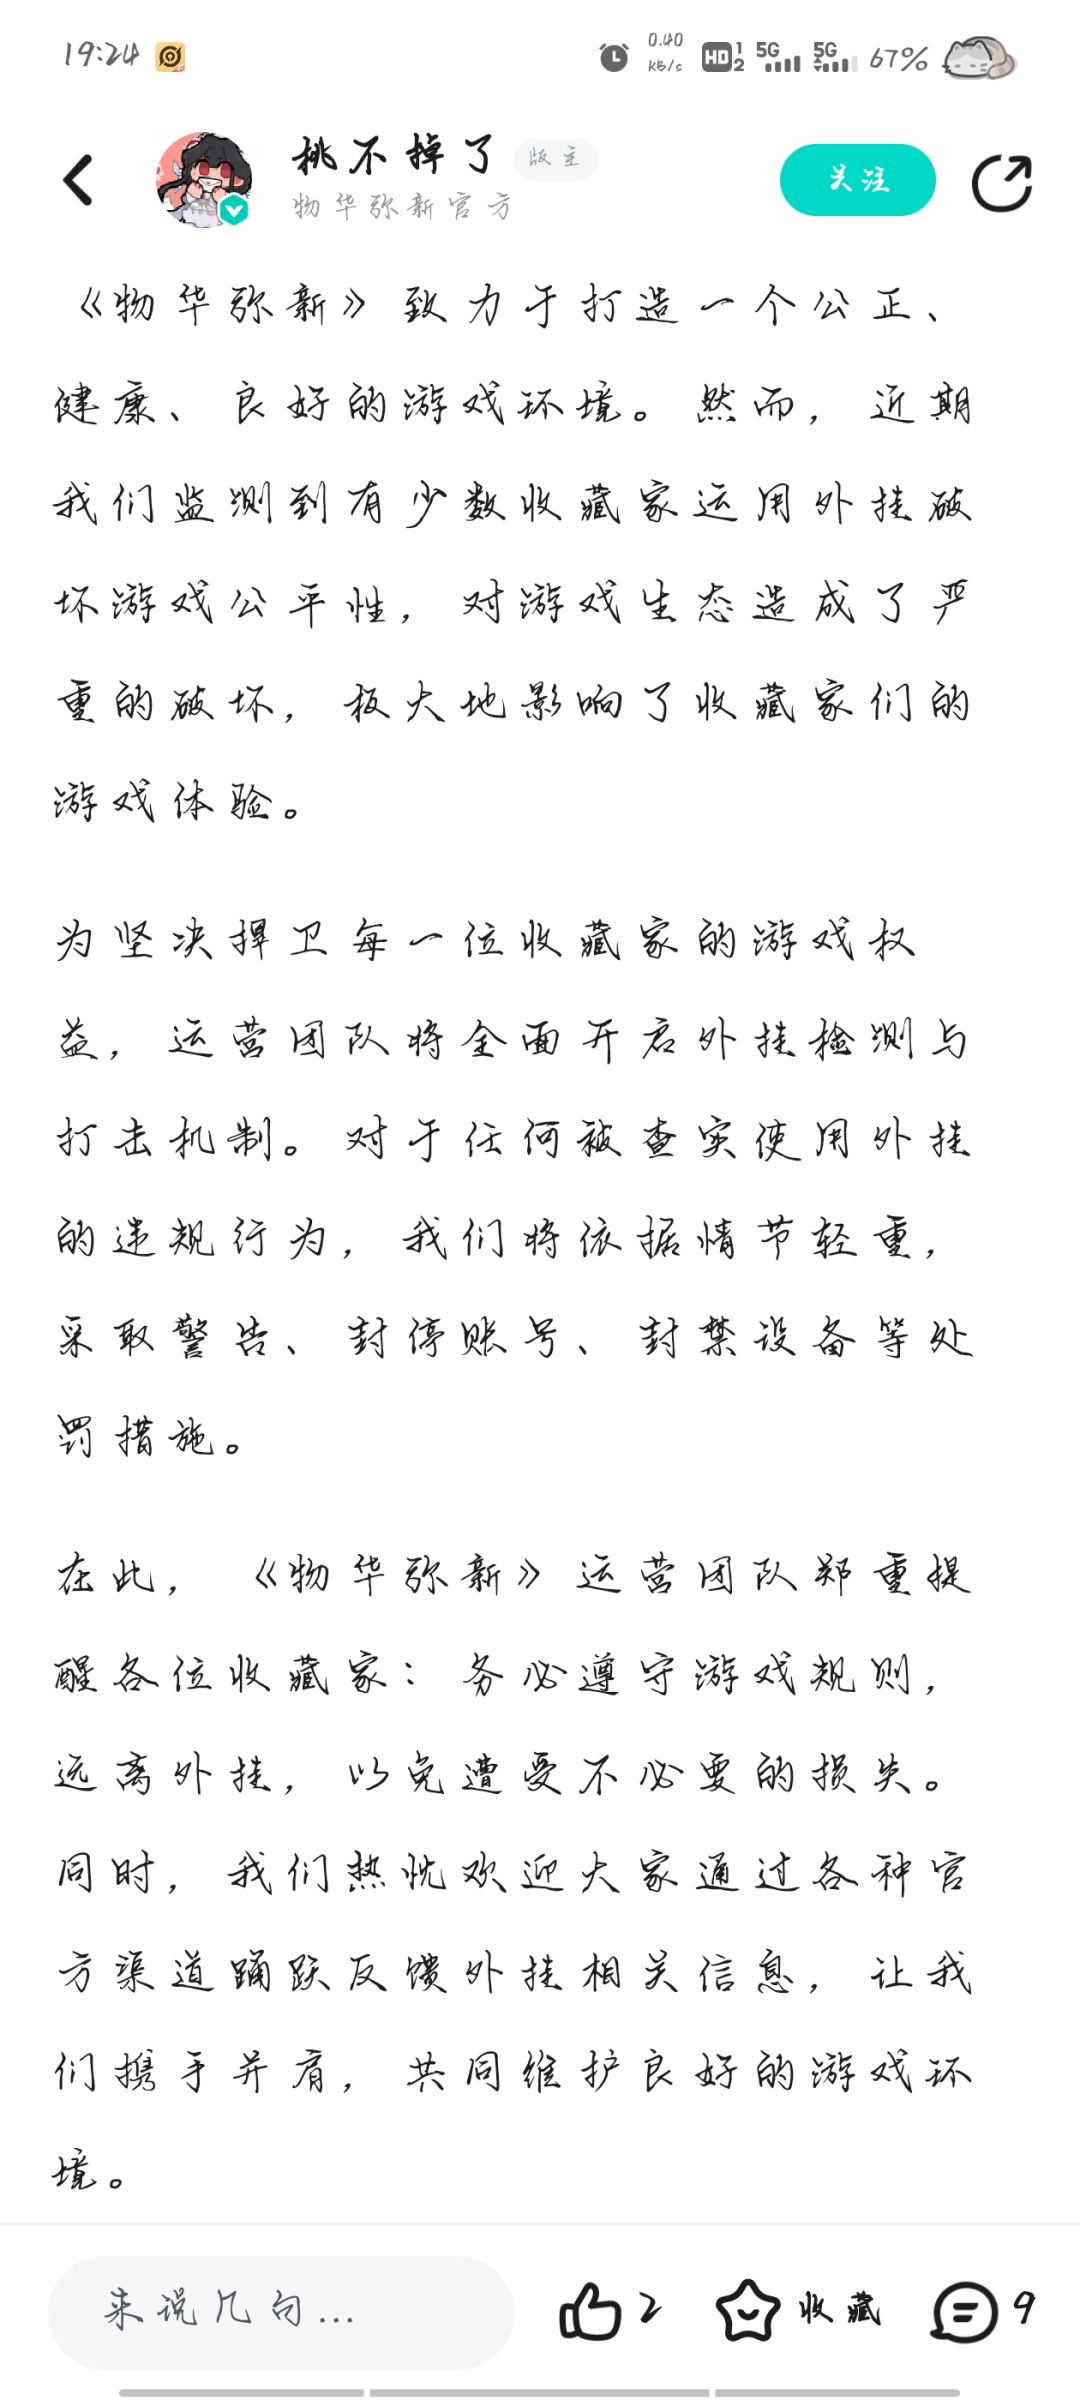 19:24
0.40 KB/s HD 1 2 5G 5G 67%
桃不掉了 版主
物华弥新官方
关注
《物华弥新》致力于打造一个公正、
健康、良好的游戏环境。然而，近期
我们监测到有少数收藏家运用外挂破
坏游戏公平性，对游戏生态造成了严
重的破坏，极大地影响了收藏家们的
游戏体验。
为坚决捍卫每一位收藏家的游戏权
益，运营团队将全面开启外挂检测与
打击机制。对于任何被查实使用外挂
的违规行为，我们将依据情节轻重，
采取警告、封停账号、封禁设备等处
罚措施。
在此，《物华弥新》运营团队郑重提
醒各位收藏家：务必遵守游戏规则，
远离外挂，以免遭受不必要的损失。
同时，我们热忱欢迎大家通过各种官
方渠道踊跃反馈外挂相关信息，让我
们携手并肩，共同维护良好的游戏环
境。
来说几句... 2 收藏 9